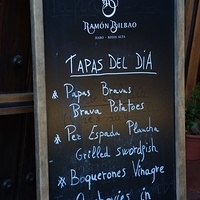 RAMÓN BILBAO
HARO - RIOJA ALTA
TAPAS DEL DIA
* Papas Bravas
Brava Potatoes
* Pez Espada Plancha
Grilled swordfish
* Boquerones Vinagre
Anchovies in